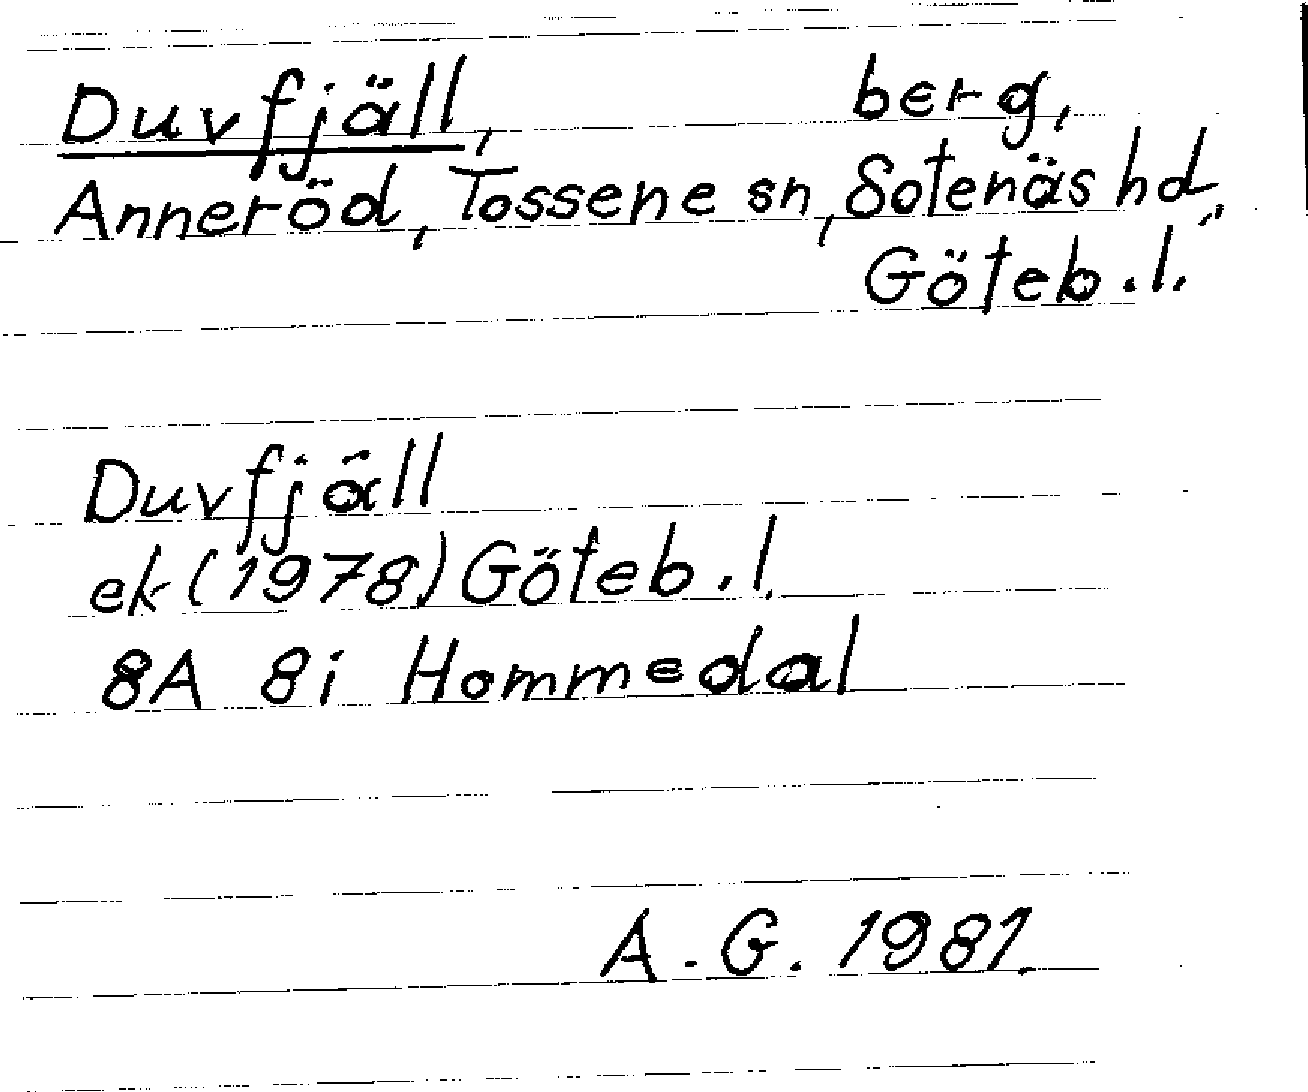 Duvfjäll, berg,
Anneröd, Tossene sn, Sotenäs hd,
Göteb. l.
Duvfjäll
ek (1978) Göteb. l.
8A 8i Hommedal
A. G. 1981.